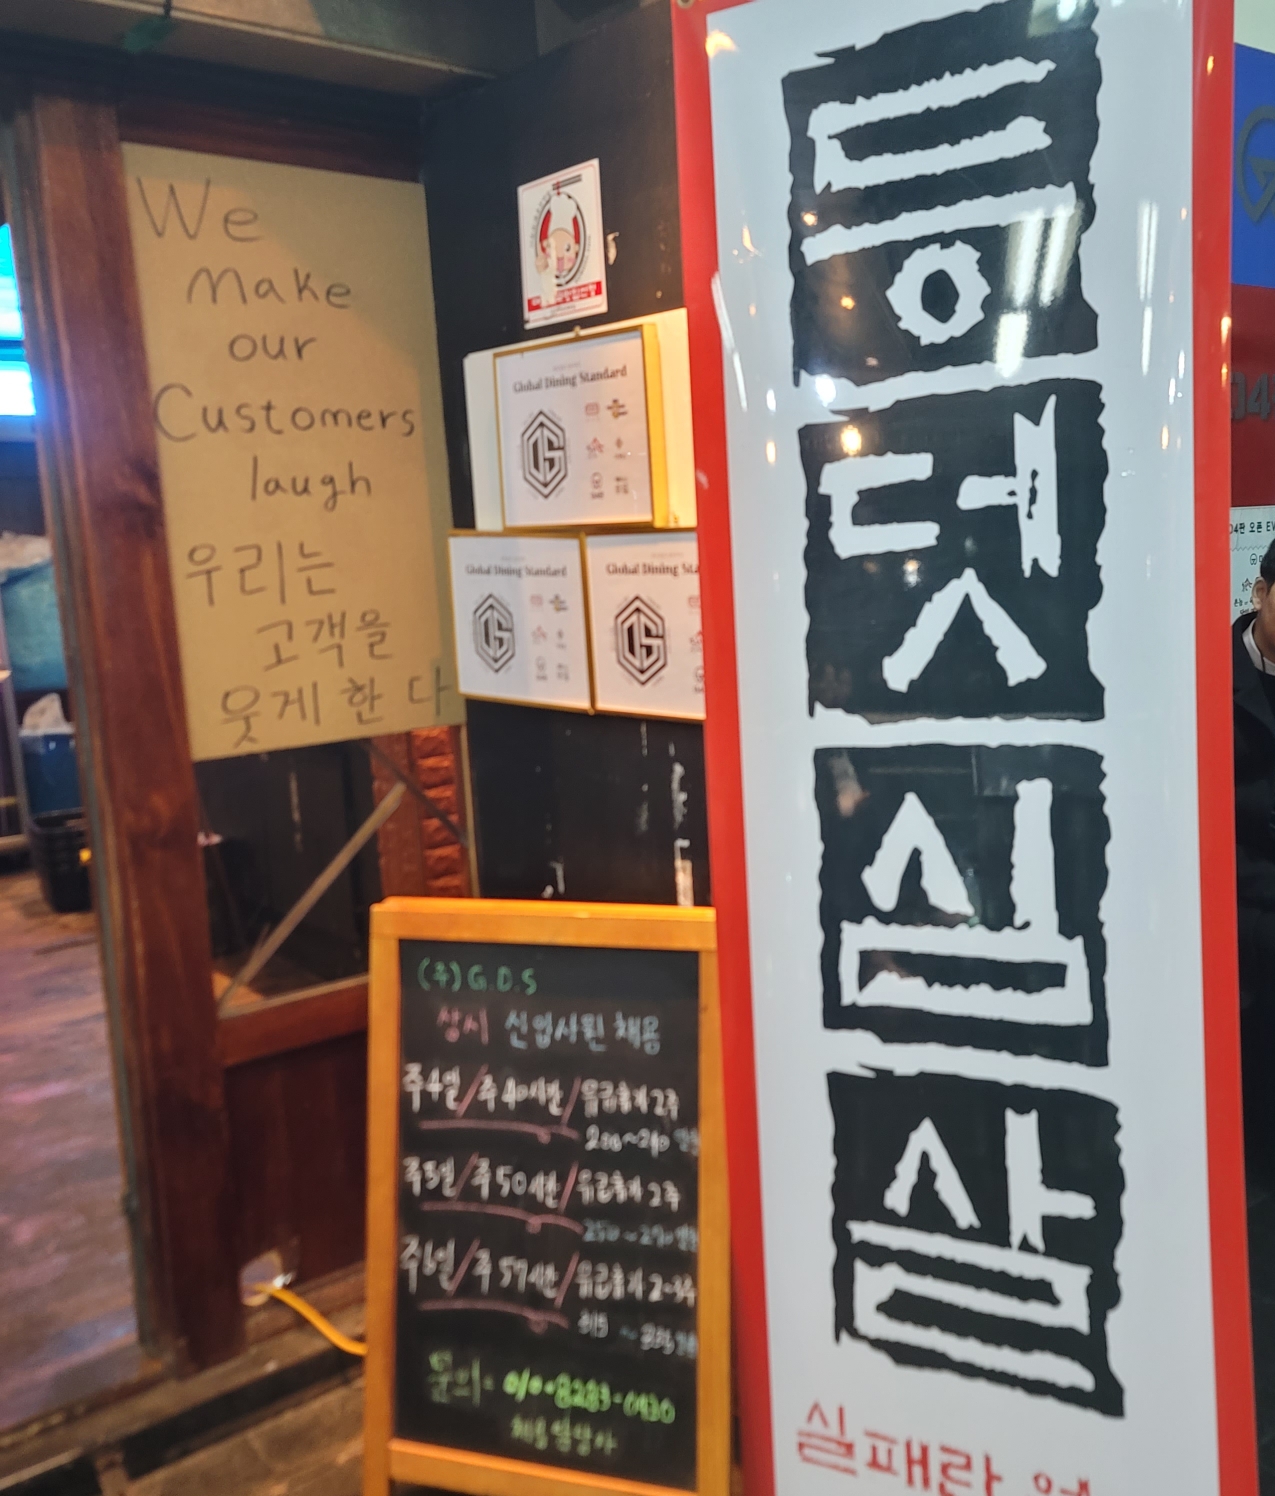 We
make
our
Customers
laugh
우리는
고객을
웃게 한다
Global Dining Standard
GS
Global Dining Standard
GS
Global Dining Sta
GS
(주)G.D.S
상시 신입사원 채용
주4일/주40시간/유급휴가 2주
200~240
주5일/주50시간/유급휴가 2주
250~270
주6일/주57시간/유급휴가 2~3주
315 ~
문의- 010-8283-0930
채용담당자
등
댓
심
삼
실패란
04판 오픈 EV